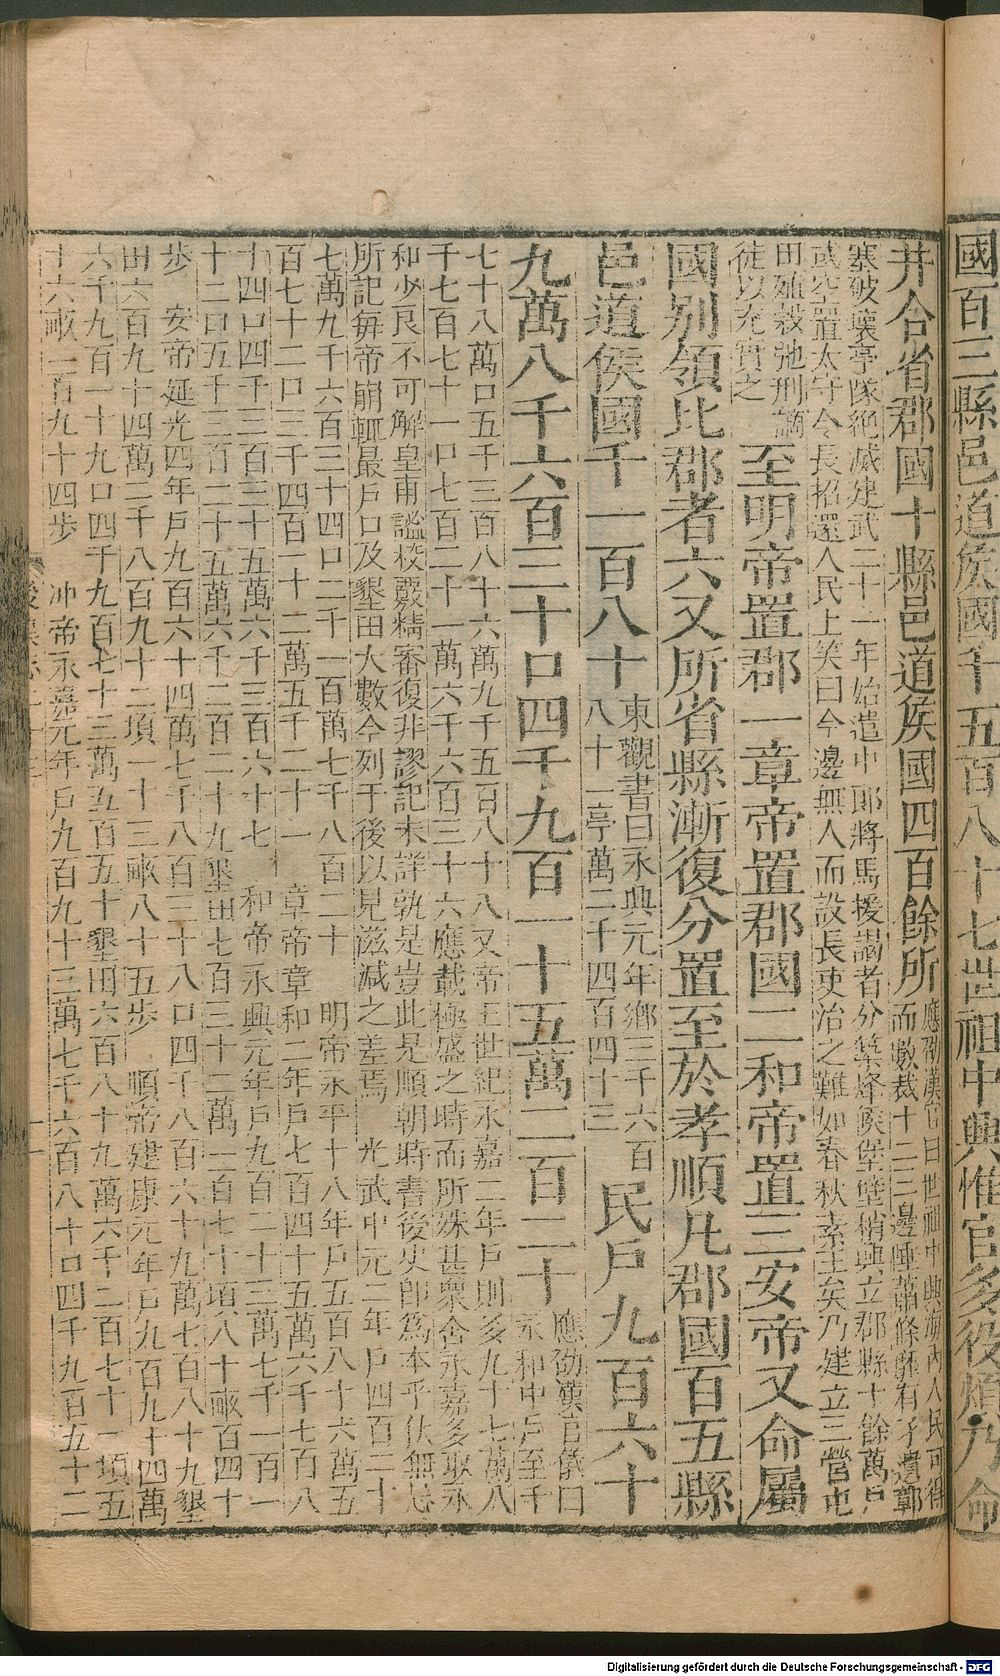 國百三縣邑道侯國千五百八十七世祖中興惟官多役煩乃命
并合省郡國十縣邑道侯國四百餘所
應劭漢官曰世祖中興海內人民可得
而數裁十二三邊陲蕭條靡有孑遺鄣
塞破壞亭隊絕滅建武二十一年始遣中郎將馬援謁者分築烽候堡壁稍興立郡縣十餘萬戶
或空置太守令長招還人民上笑曰今邊無人而設長吏治之難如春秋素王矣乃建立三營屯
田殖穀弛刑謫
徒以充實之
至明帝置郡一章帝置郡國二和帝置三安帝又命屬
國別領比郡者六又所省縣漸復分置至於孝順凡郡國百五縣
邑道侯國千一百八十
東觀書曰永興元年鄉三千六百
八十二亭萬二千四百四十三
民戶九百六十
九萬八千六百三十口四千九百一十五萬二百二十
應劭漢官儀曰
永和中戶至千
七十八萬口五千三百八十六萬九千五百八十八又帝王世紀永嘉二年戶則多九十七萬八
千七百七十一口七百二十一萬六千六百三十六應載極盛之時而所殊甚衆舍永嘉多取永
和少良不可解皇甫謐校覈精審復非謬記未詳孰是豈此是順朝時書後史即為本乎伏無忌
所記每帝崩輒最戶口及墾田大數今列于後以見滋減之差焉 光武中元二年戶四百二十
七萬九千六百三十四口二千一百萬七千八百二十 明帝永平十八年戶五百八十六萬五
百七十一口三千四百一十二萬五千二十一 章帝章和二年戶七百四十五萬六千七百八
十四口四千三百三十五萬六千三百六十七 和帝永興元年戶九百二十三萬七千一百一
十二口五千三百二十五萬六千二百二十九墾田七百三十二萬一百七十頃八十畝百四十
步 安帝延光四年戶九百六十四萬七千八百三十八口四千八百六十九萬七百八十九墾
田六百九十四萬二千八百九十二頃一十三畝八十五步 順帝建康元年戶九百九十四萬
六千九百一十九口四千九百七十三萬五百五十墾田六百八十九萬六千二百七十一頃五
十六畝一百九十四步 沖帝永嘉元年戶九百九十三萬七千六百八十口四千九百五十二
Digitalisierung gefördert durch die Deutsche Forschungsgemeinschaft - DFG